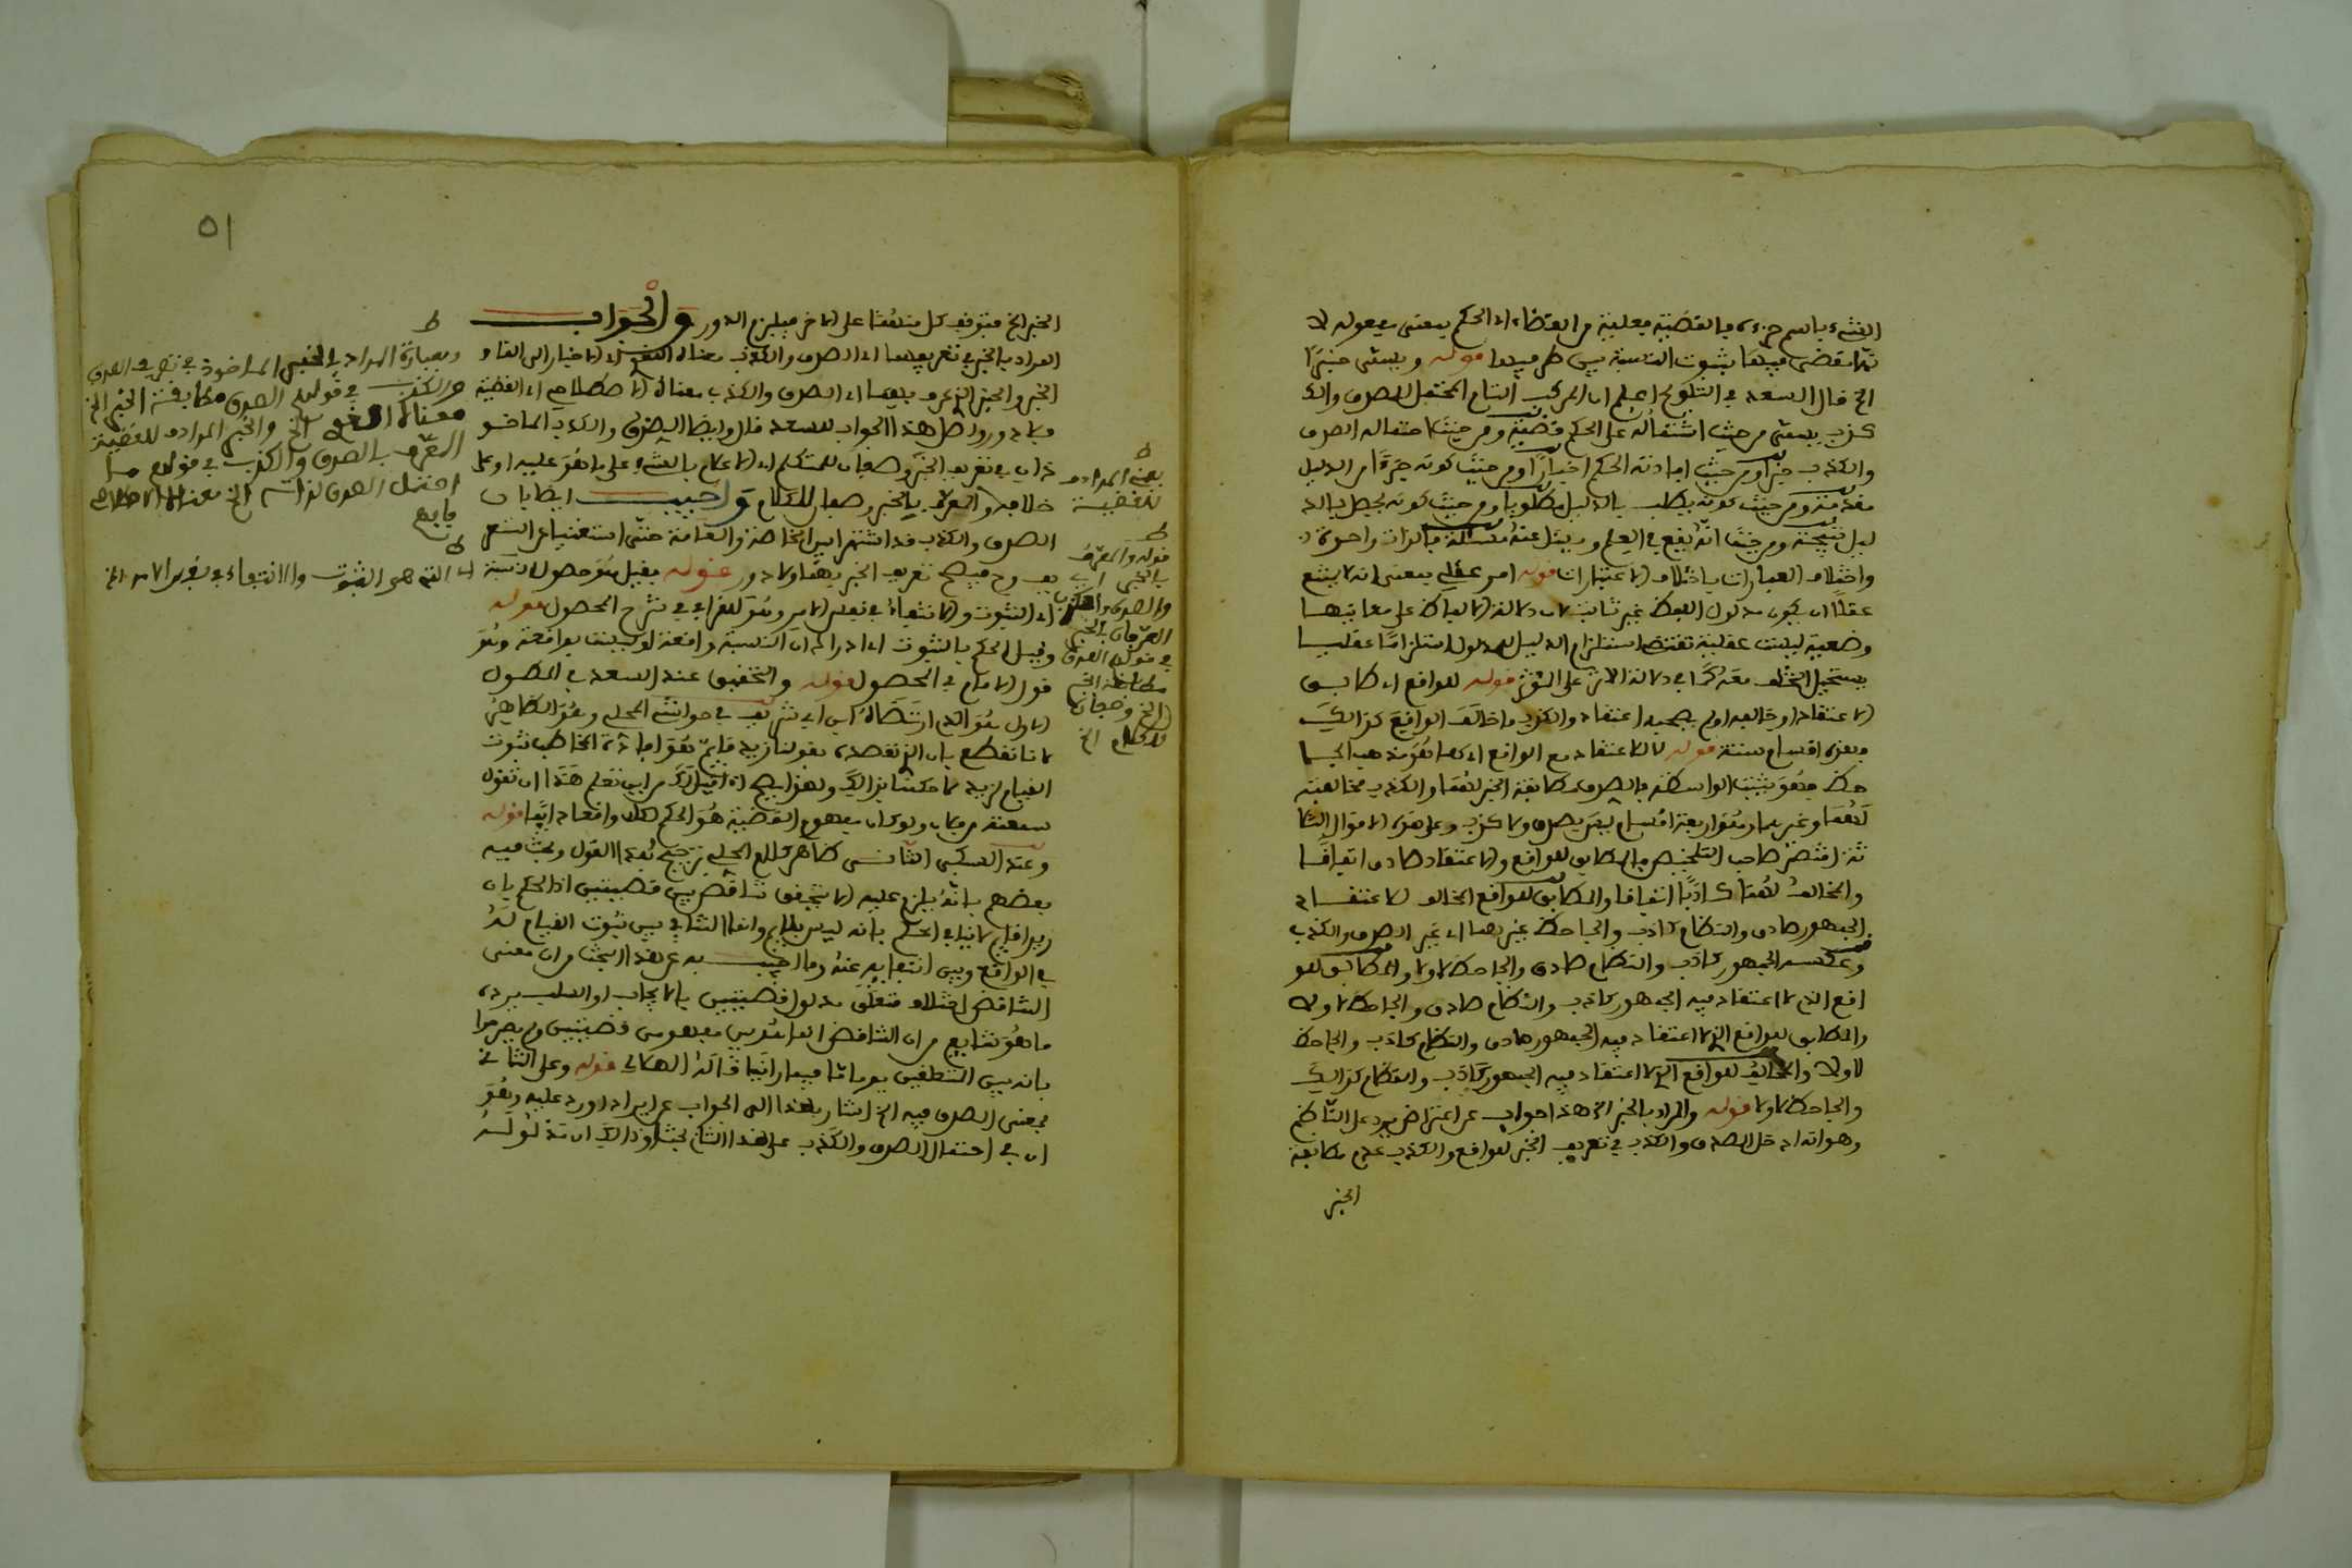 الشيء باسم جزءه والقضية فعلية من القضاء اي الحكم بمعنى مفعولة لا
نها يقضى فيها بثبوت النسبة بين طرفيها قوله ويسمى خبرا
الخ قال السعد في التلويح اعلم ان المركب التام المحتمل للصدق والكذ
كذب يسمى من حيث اشتماله على الحكم قضية ومن حيث احتماله الصدق
والكذب خبرا ومن حيث افادته الحكم اخبارا ومن حيث كونه جزءا من الدليل
مقدمة ومن حيث كونه يطلب بالدليل مطلوبا ومن حيث كونه يحصل بالد
ليل نتيجة ومن حيث انه يقع في العلم ويسئل عنه مسئلة فالذات واحدة و
واختلاف العبارات باختلاف الاعتبارات قوله امر عقلي بمعنى انه لا يمتنع
عقلا ان يكون مدلول اللفظ غير ثابت لان دلالة الالفاظ على معانيها
وضعية ليست عقلية تقتضي استلزام الدليل للمدلول استلزاما عقليا
يستحيل التخلف معه كما في دلالة الاثر على المؤثر قوله للواقع اي طابق
الاعتقاد او خالفه او لم يصحبه اعتقاد والكذب ما خالف الواقع كذالك
فهذه اقسام ستة قوله لا للاعتقاد مع الواقع اي كما هو مذهب الجا
حظ فهو يثبت الواسطة فالصدق مطابقة الخبر لهما والكذب مخالفته
لهما وغيرهما وهو اربعة اقسام ليس بصدق ولا كذب وعلى هذه الاقوال الثلا
ثة اقتصر صاحب التلخيص فالمطابق للواقع والاعتقاد صادق اتفاقا
والمخالف لهما كاذب اتفاقا والمطابق للواقع المخالف للاعتقاد
الجمهور صادق والنظام كاذب والجاحظ غيرهما اي غير الصدق والكذب
وعكسه الجمهور كاذب والنظام صادق والجاحظ لا ولا والمطابق للو
اقع الذي لا اعتقاد فيه الجمهور كاذب والنظام صادق والجاحظ لا ولا
والمطابق للواقع الذي لا اعتقاد فيه الجمهور صادق والنظام كاذب والجاحظ
لا ولا والمخالف للواقع الذي لا اعتقاد فيه الجمهور كاذب والنظام كذالك
والجاحظ لا ولا قوله والمراد بالخبر الخ هذا جواب عن اعتراض يرد على الناظم
وهو انه ادخل الصدق والكذب في تعريف الخبر للواقع والكذب عدم مطابقة
الخبر
٥١
الخبر الخ فيتوقف كل منهما على الاخر فيلزم الدور والجواب
المراد بالخبر في تعريفهما اي الصدق والكذب معناه اللغوي اي الاخبار
الخبر والخبر الذي عرف بهما اي الصدق والكذب معناه الاصطلاحي اي القضية
فلا دور واصل هذا الجواب للسعد قال وايضا الصدق والكذب الماخو
ذان في تعريف الخبر وصفان للمتكلم اي الاعلام بالشيء على ما هو عليه او على
خلافه والمعرف بالخبر وصفان للكلام واجيب ايضا بان
الصدق والكذب قد اشتهرا بين الخاصة والعامة حتى استغنيا عن التعر
يف وح فيصح تعريف الخبر بهما ولا دور قوله فقيل هو حصول النسبة
اي الثبوت والانتفاء في نفس الامر وهو للقرافي في شرح المحصول قوله
وقيل الحكم بالثبوت اي ادراك ان النسبة واقعة او ليست بواقعة وهو
قول الامام في المحصول قوله والتحقيق عند السعد في المطول
الاول هو الذي ارتضاه ابن ابي شريف في حواشي المحلي وهو الظاهر
لانا نقطع بان الذي نقصده بقولنا زيد قايم هو افادة المخاطب ثبوت
القيام لزيد لا حكمنا بذالك ولهذا يصح اذا قيل لك من اين تعلم هذا ان تقول
سمعته من فلان ولو كان مفهوم القضية هو الحكم لكان واقعا دايما قوله
وعند العكس الثاني ظاهر كلام المحلي ترجيح هذا القول وبحث فيه
بعضهم بانه يلزم عليه الا يتحقق تناقض بين قضيتين اذ الحكم بان
زيدا قايم لا ينافي الحكم بانه ليس بقايم وانما التنافي بين ثبوت القيام له
في الواقع وبين انتفايه عنه وما اجيب به عن هذا البحث من ان معنى
التناقض اختلاف متعلق مدلول قضيتين بالايجاب او السلب يرده
ما هو شايع من ان التناقض انما هو بين مفهومي قضيتين ولم يصرحوا
بانه بين المتعلقين يوما ما فيما راينا قاله الهلالي قوله وعلى الثاني
فمعنى الصدق فيه الخ اشار بهذا الى الجواب عن ايراد اورد عليه وهو
ان في احتمال الصدق والكذب على هذا الثاني بحثا وذالك ان مدلوله
ط
وبعبارة المراد في الخبر الماخوذ في تعريف الصدق
والكذب في قولهم الصدق مطابقة الخبر الخ
معناه اللغوي الخ والخبر المرادف للقضية
المعرف بالصدق والكذب في قولهم ما
احتمل الصدق لذاته الخ معناه الاصطلاحي
فافهم
ط
التي هي الثبوت والانتفاء في نفس الامر الخ
ط
يعني المرادف
للقضية
ط
قوله والمعرف
بالخبر اي
والصدق والكذب
المعرفان بالخبر
في قولنا الصدق
مطابقة الخبر
الخ وصفان
للكلام الخ